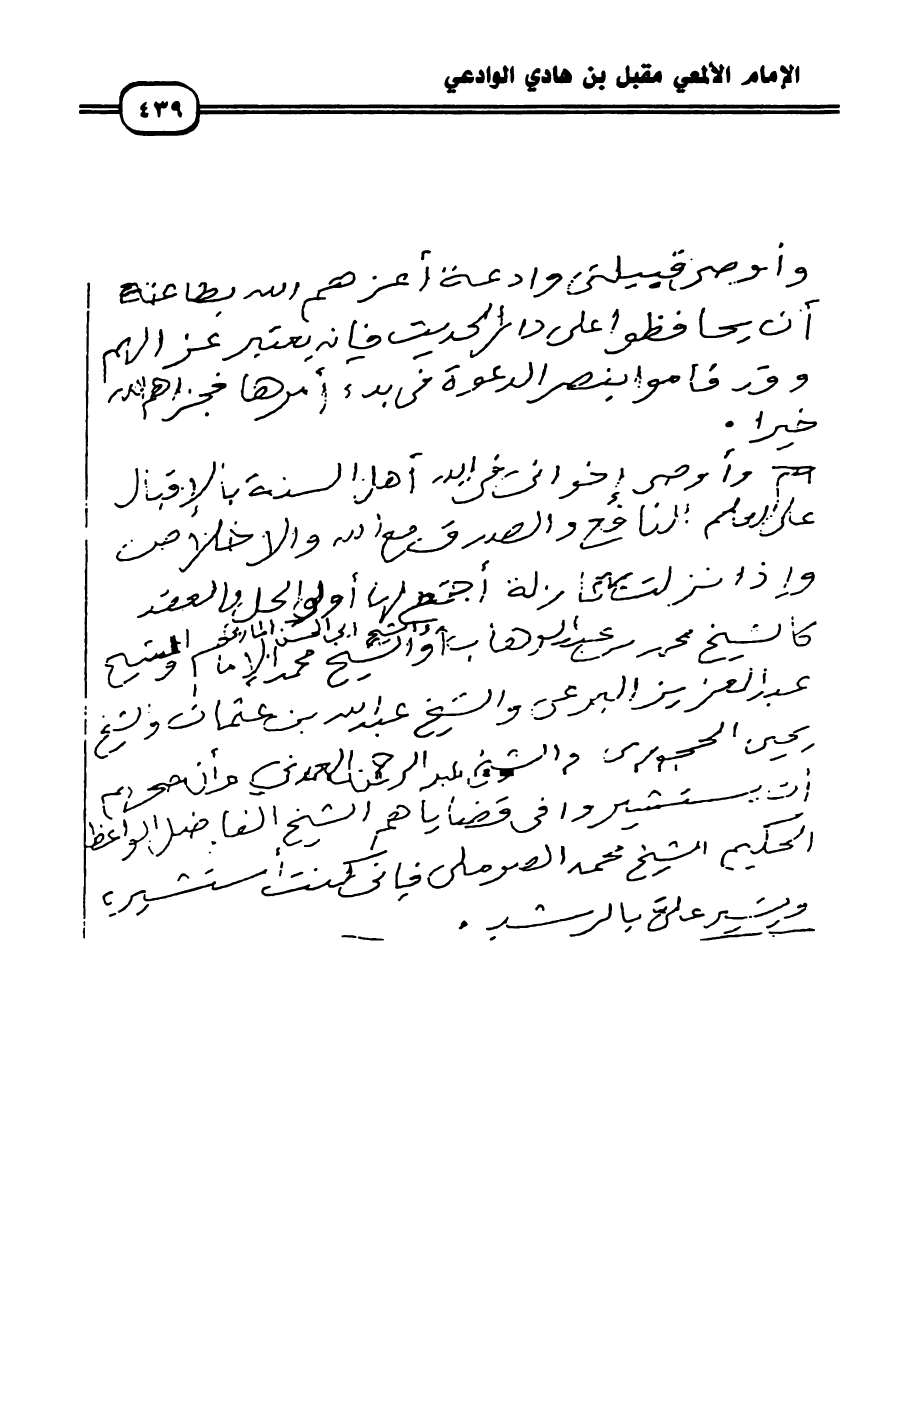 الإمام الألمعي مقبل بن هادي الوادعي
٤٣٩
وأوصي قبيلتي وادعة أعزهم الله بطاعته
أن يحافظوا على دار الحديث فإنه يعتبر عز الهم
وقد قاموا بنصر الدعوة في بدء أمرها فجزاهم الله
خيرا .
وأوصي إخواني في الله أهل السنة بالإقبال
على العلم النافع والصدق مع الله والاخلاص
وإذا نزلت نازلة أجتمع لها أولو الحل والعقد
كالشيخ محمد بن عبد الوهاب والشيخ أبي الحسن المأربي
والشيخ محمد الإمام والشيخ
عبد العزيز البرعي والشيخ عبد الله بن عثمان والشيخ
يحيى الحجوري والشيخ عبد الرحمن العدني وأنصحهم
أن يستشيروا في قضاياهم الشيخ الفاضل الواعظ
الحكيم الشيخ محمد الصوملي فإني كنت أستشيره
ويشير علي بالرشد .